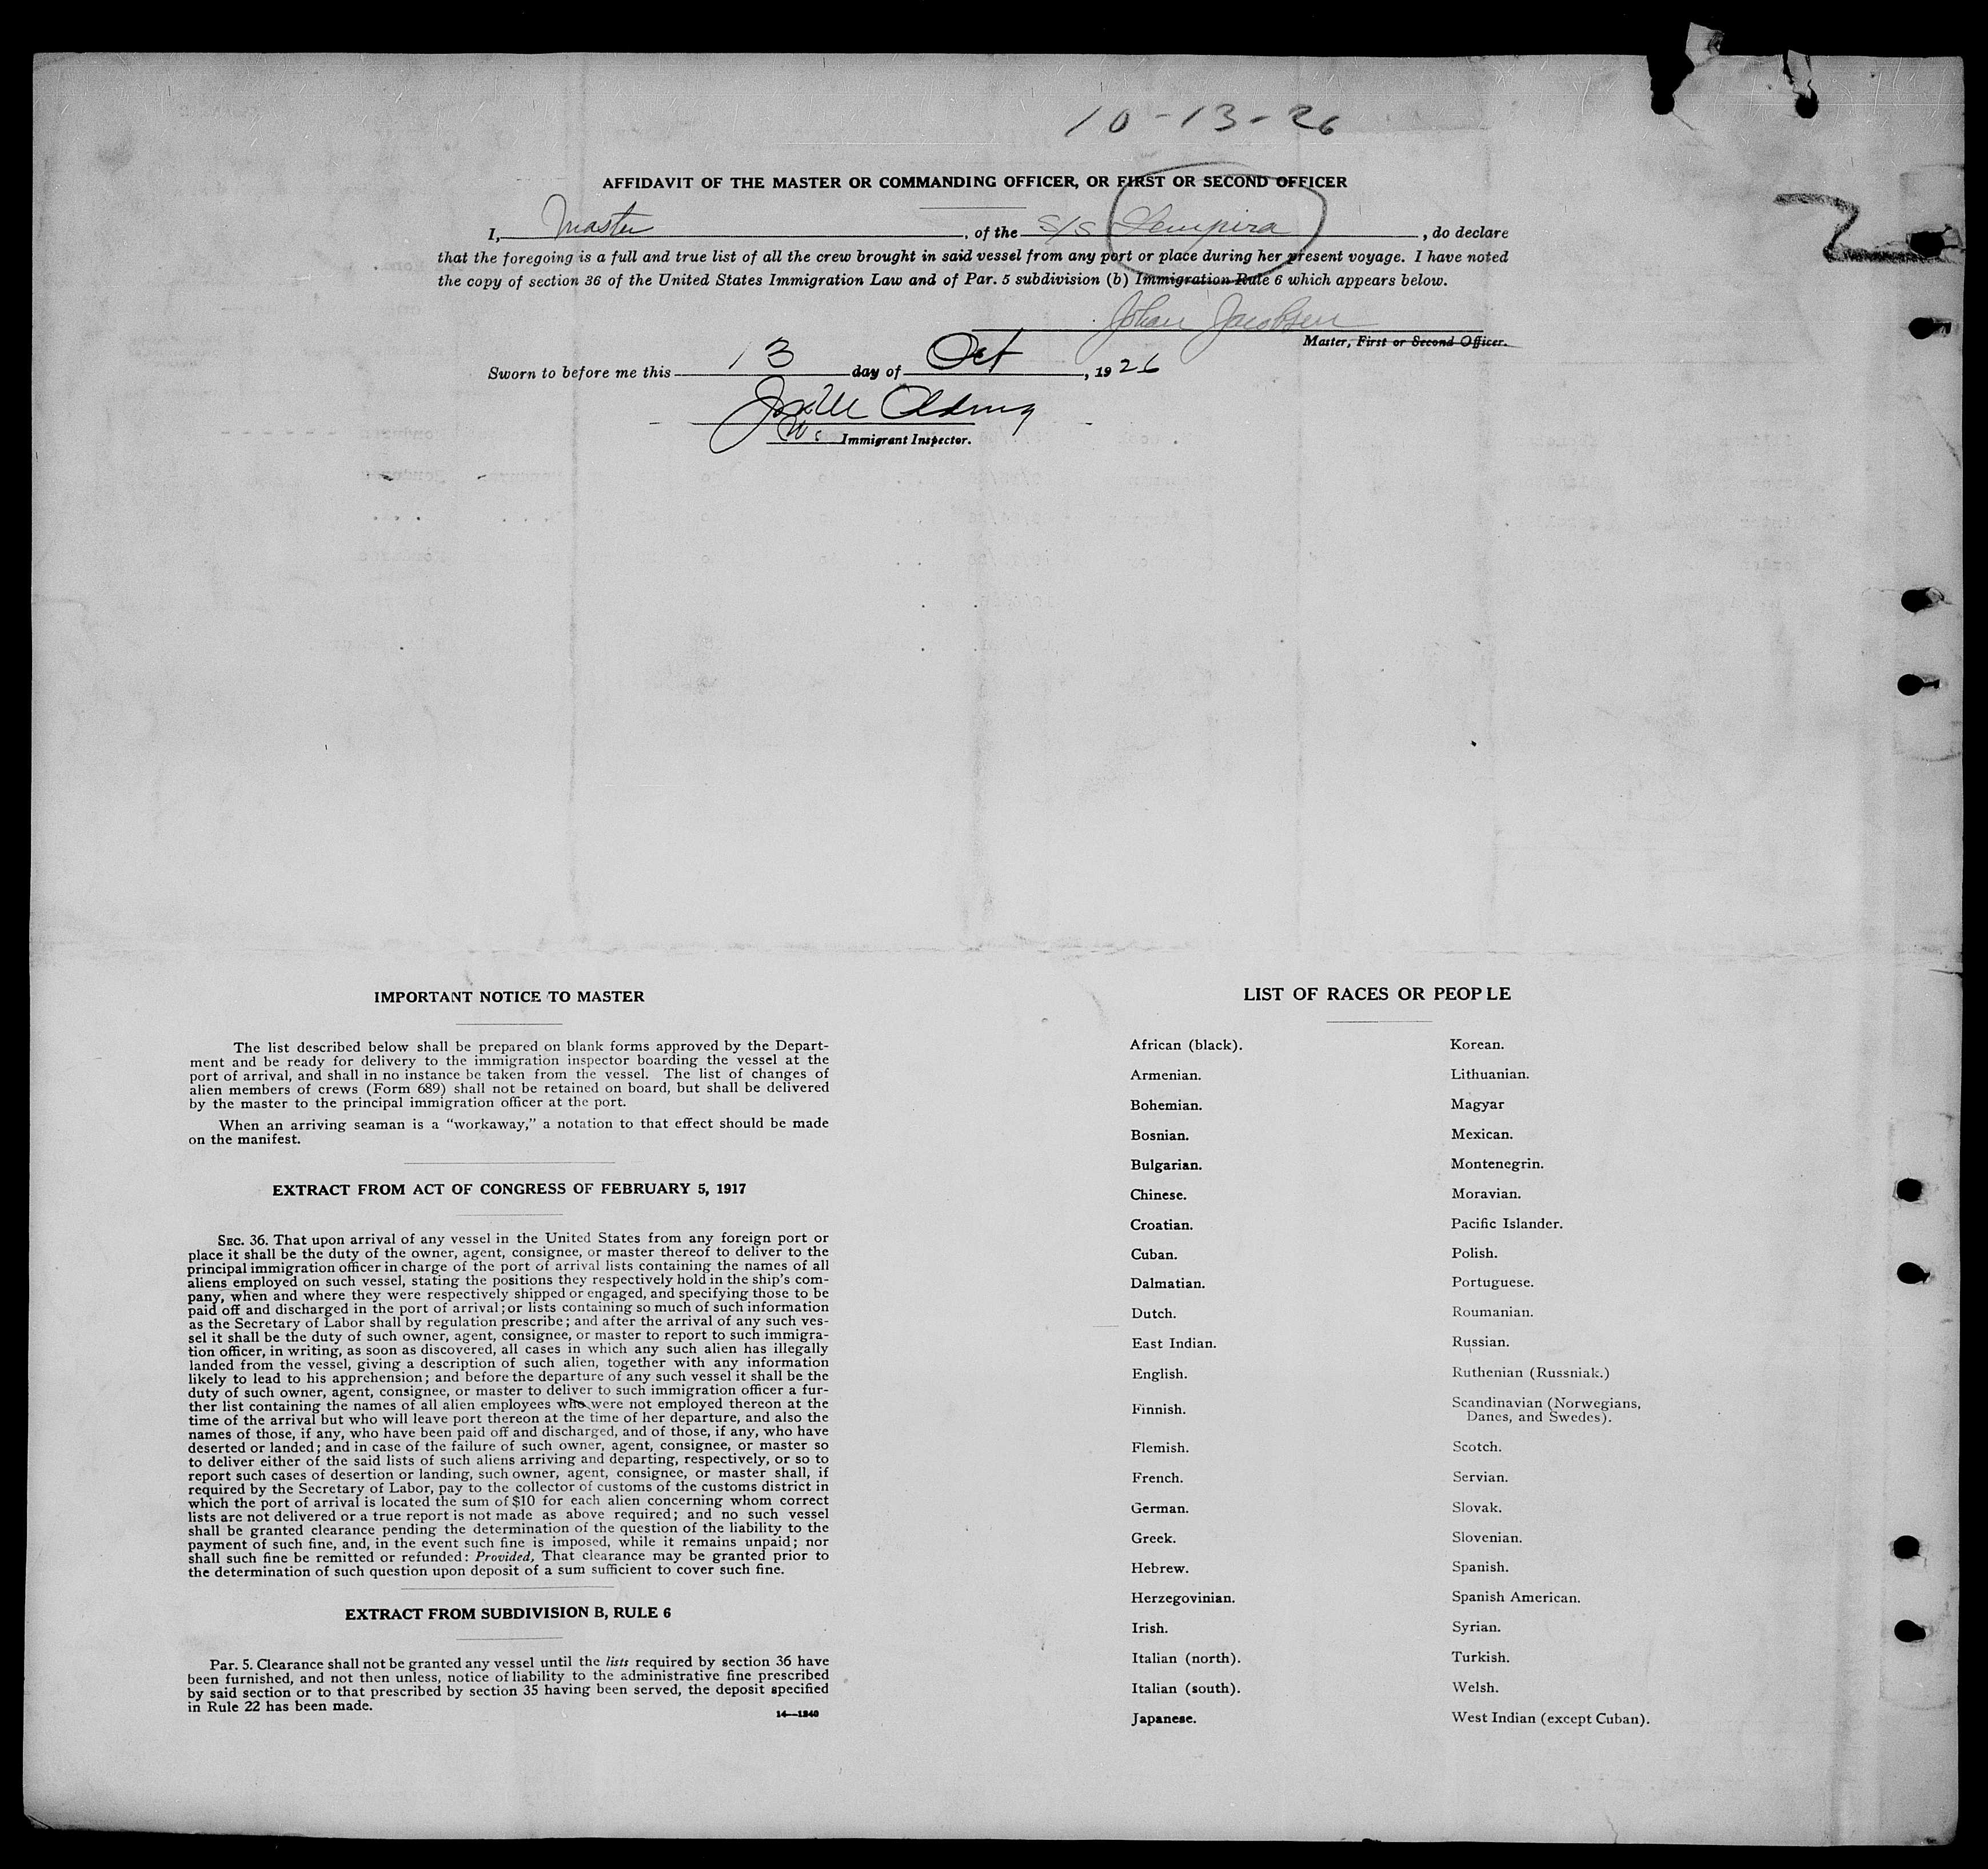 10-13-26
AFFIDAVIT OF THE MASTER OR COMMANDING OFFICER, OR FIRST OR SECOND OFFICER
I, Master, of the S/S Lempira, do declare
that the foregoing is a full and true list of all the crew brought in said vessel from any port or place during her present voyage. I have noted
the copy of section 36 of the United States Immigration Law and of Par. 5 subdivision (b) Immigration Rule 6 which appears below.
Johan Jacobsen
Master, First or Second Officer.
Sworn to before me this 13 day of Oct, 1926
Immigrant Inspector.
2
IMPORTANT NOTICE TO MASTER
The list described below shall be prepared on blank forms approved by the Depart-
ment and be ready for delivery to the immigration inspector boarding the vessel at the
port of arrival, and shall in no instance be taken from the vessel. The list of changes of
alien members of crews (Form 689) shall not be retained on board, but shall be delivered
by the master to the principal immigration officer at the port.
When an arriving seaman is a “workaway,” a notation to that effect should be made
on the manifest.
EXTRACT FROM ACT OF CONGRESS OF FEBRUARY 5, 1917
SEC. 36. That upon arrival of any vessel in the United States from any foreign port or
place it shall be the duty of the owner, agent, consignee, or master thereof to deliver to the
principal immigration officer in charge of the port of arrival lists containing the names of all
aliens employed on such vessel, stating the positions they respectively hold in the ship's com-
pany, when and where they were respectively shipped or engaged, and specifying those to be
paid off and discharged in the port of arrival; or lists containing so much of such information
as the Secretary of Labor shall by regulation prescribe; and after the arrival of any such ves-
sel it shall be the duty of such owner, agent, consignee, or master to report to such immigra-
tion officer, in writing, as soon as discovered, all cases in which any such alien has illegally
landed from the vessel, giving a description of such alien, together with any information
likely to lead to his apprehension; and before the departure of any such vessel it shall be the
duty of such owner, agent, consignee, or master to deliver to such immigration officer a fur-
ther list containing the names of all alien employees who were not employed thereon at the
time of the arrival but who will leave port thereon at the time of her departure, and also the
names of those, if any, who have been paid off and discharged, and of those, if any, who have
deserted or landed; and in case of the failure of such owner, agent, consignee, or master so
to deliver either of the said lists of such aliens arriving and departing, respectively, or so to
report such cases of desertion or landing, such owner, agent, consignee, or master shall, if
required by the Secretary of Labor, pay to the collector of customs of the customs district in
which the port of arrival is located the sum of $10 for each alien concerning whom correct
lists are not delivered or a true report is not made as above required; and no such vessel
shall be granted clearance pending the determination of the question of the liability to the
payment of such fine, and, in the event such fine is imposed, while it remains unpaid; nor
shall such fine be remitted or refunded: Provided, That clearance may be granted prior to
the determination of such question upon deposit of a sum sufficient to cover such fine.
EXTRACT FROM SUBDIVISION B, RULE 6
Par. 5. Clearance shall not be granted any vessel until the lists required by section 36 have
been furnished, and not then unless, notice of liability to the administrative fine prescribed
by said section or to that prescribed by section 35 having been served, the deposit specified
in Rule 22 has been made.
14—1240
LIST OF RACES OR PEOPLE
African (black).
Armenian.
Bohemian.
Bosnian.
Bulgarian.
Chinese.
Croatian.
Cuban.
Dalmatian.
Dutch.
East Indian.
English.
Finnish.
Flemish.
French.
German.
Greek.
Hebrew.
Herzegovinian.
Irish.
Italian (north).
Italian (south).
Japanese.
Korean.
Lithuanian.
Magyar
Mexican.
Montenegrin.
Moravian.
Pacific Islander.
Polish.
Portuguese.
Roumanian.
Russian.
Ruthenian (Russniak.)
Scandinavian (Norwegians,
Danes, and Swedes).
Scotch.
Servian.
Slovak.
Slovenian.
Spanish.
Spanish American.
Syrian.
Turkish.
Welsh.
West Indian (except Cuban).